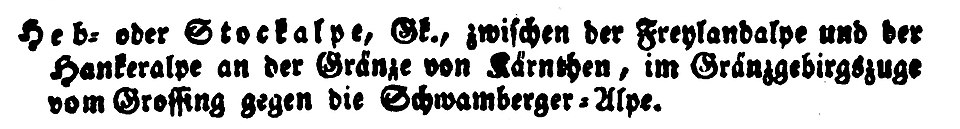 Heb= oder Stockalpe, Gk., zwischen der Freylandalpe und der
Hankeralpe an der Gränze von Kärnthen, im Gränzgebirgszuge
vom Grossing gegen die Schwamberger=Alpe.